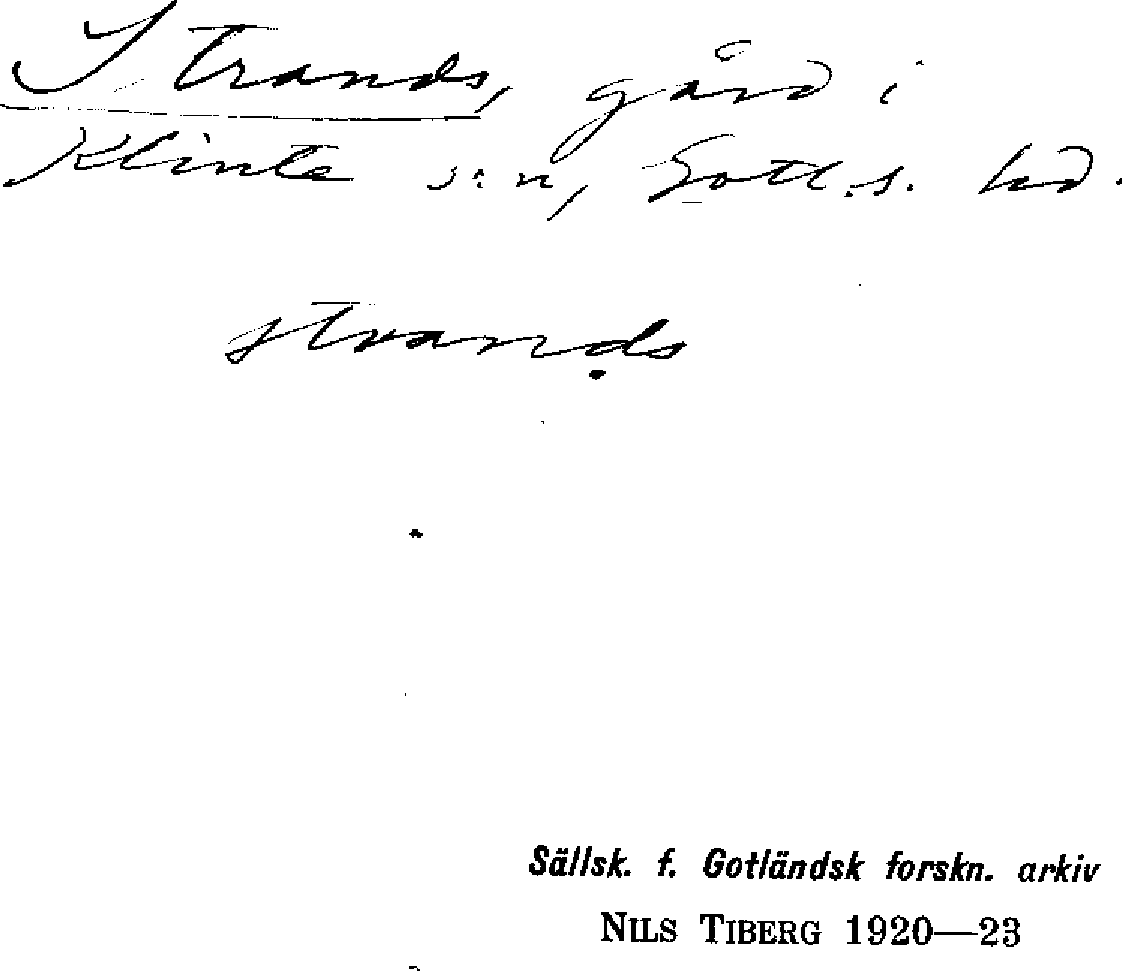 Strands, gård i
Klinte s:n, Gotl. s. hd.
strands
Sällsk. f. Gotländsk forskn. arkiv
NILS TIBERG 1920—23